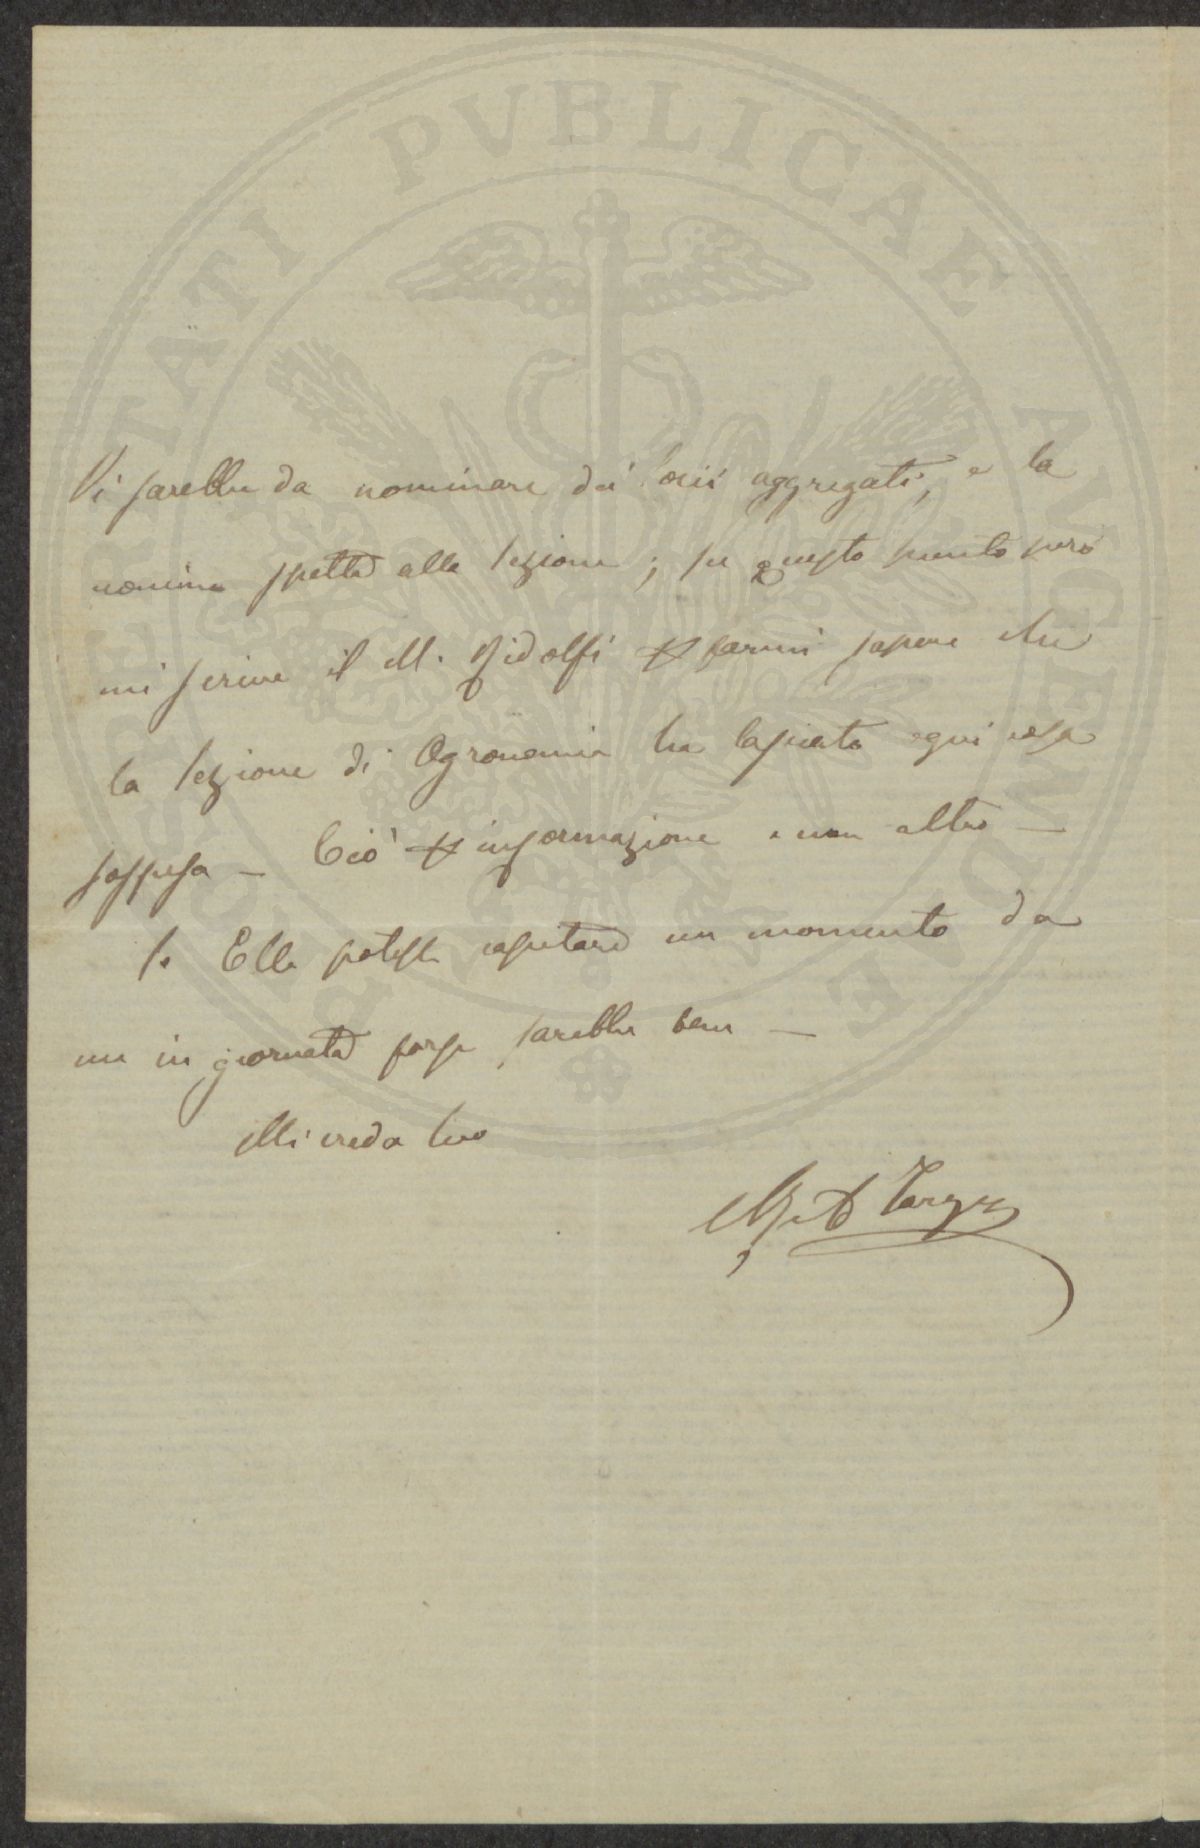 PROSPERITATI PVBLICAE AVGENDAE
Vi sarebbe da nominare dei socii aggregati, e la
nomina spetta alla Sezione; su questo punto però
mi scrive il M. Ridolfi farmi sapere che
la Sezione di Agronomia ha lasciato ogni cosa
sospesa – Ciò informazione e non altro –
Se Ella potesse capitare un momento da
me in giornata forse sarebbe bene –
Mi creda suo
Targ